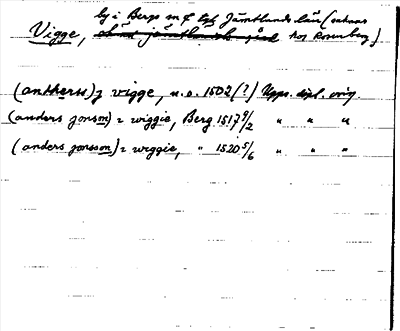 by i Bergs sn o kpl Jämtlands län (saknas
Vigge, hos Rosenberg)
(anthers) i vigge, u.o. 1502 (?) Upps. dipl. orig.
(anders jonson) i wiggie, Berg 1517 9/2 " " "
(anders jonsson) i wiggie, " 1520 5/6 " " "